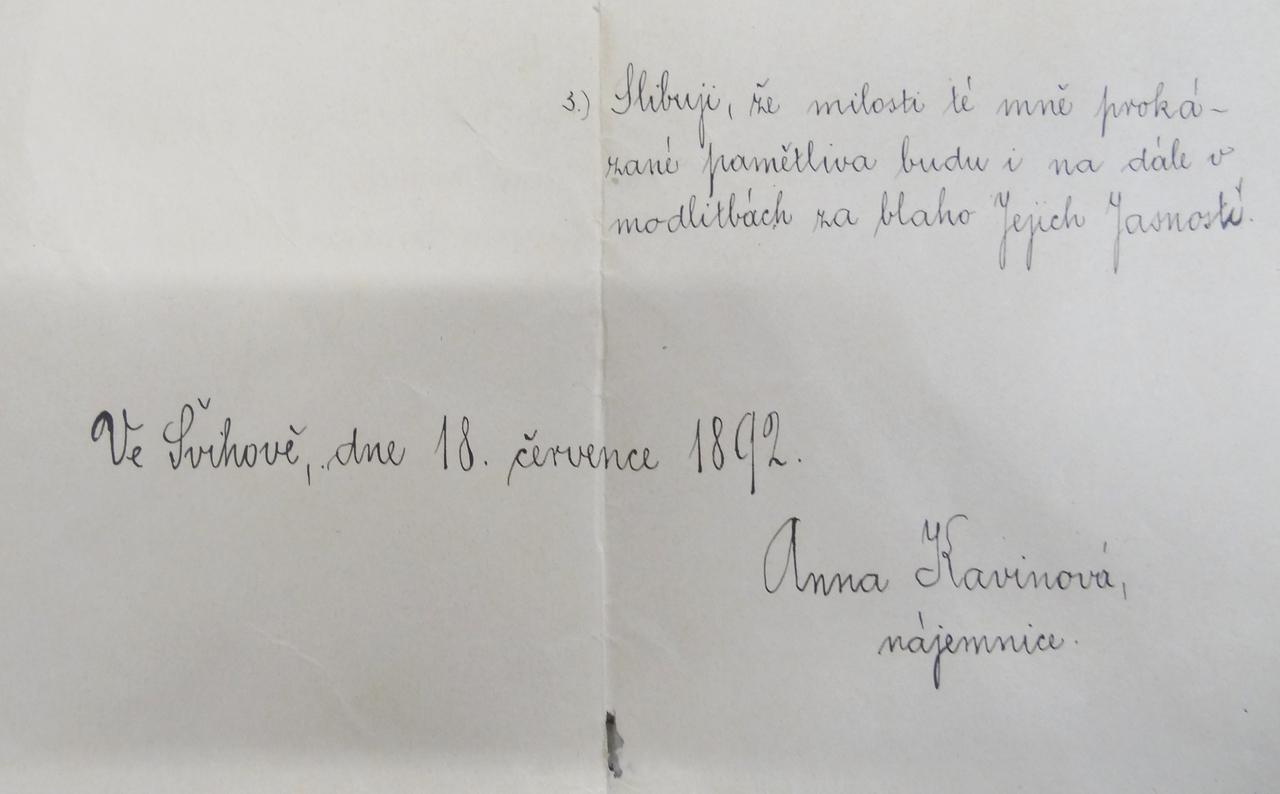 3.) Slibuji, že milosti té mně proká-
zané pamětliva budu i na dále v
modlitbách za blaho Jejich Jasností.
Ve Švihově, dne 18. července 1892.
Anna Kavinová,
nájemnice.